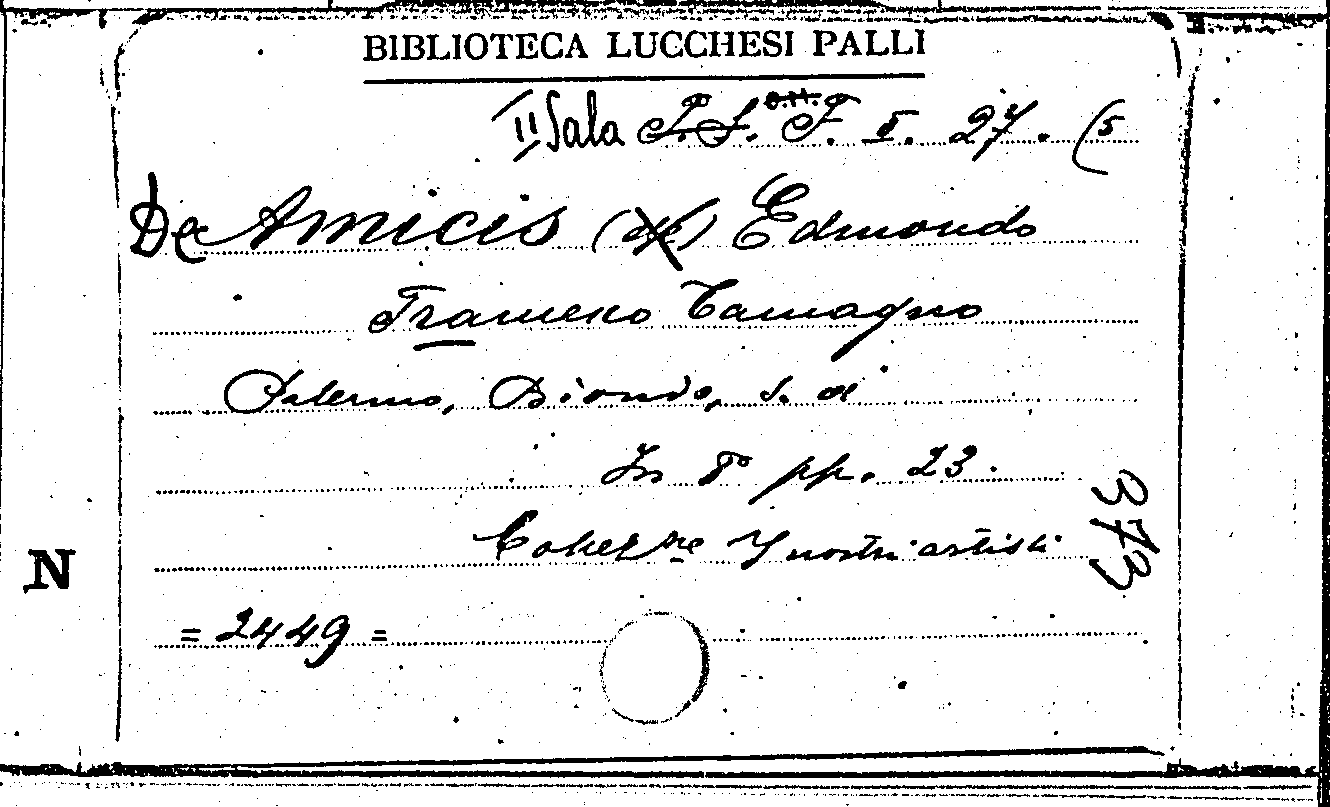 BIBLIOTECA LUCCHESI PALLI
II Sala F. I. 27. (5
De Amicis (de) Edmondo
Francesco Tamagno
Palermo, Biondo, s. a
In 8° pp. 23.
Collez.ne I nostri artisti
373
N
= 2449 =